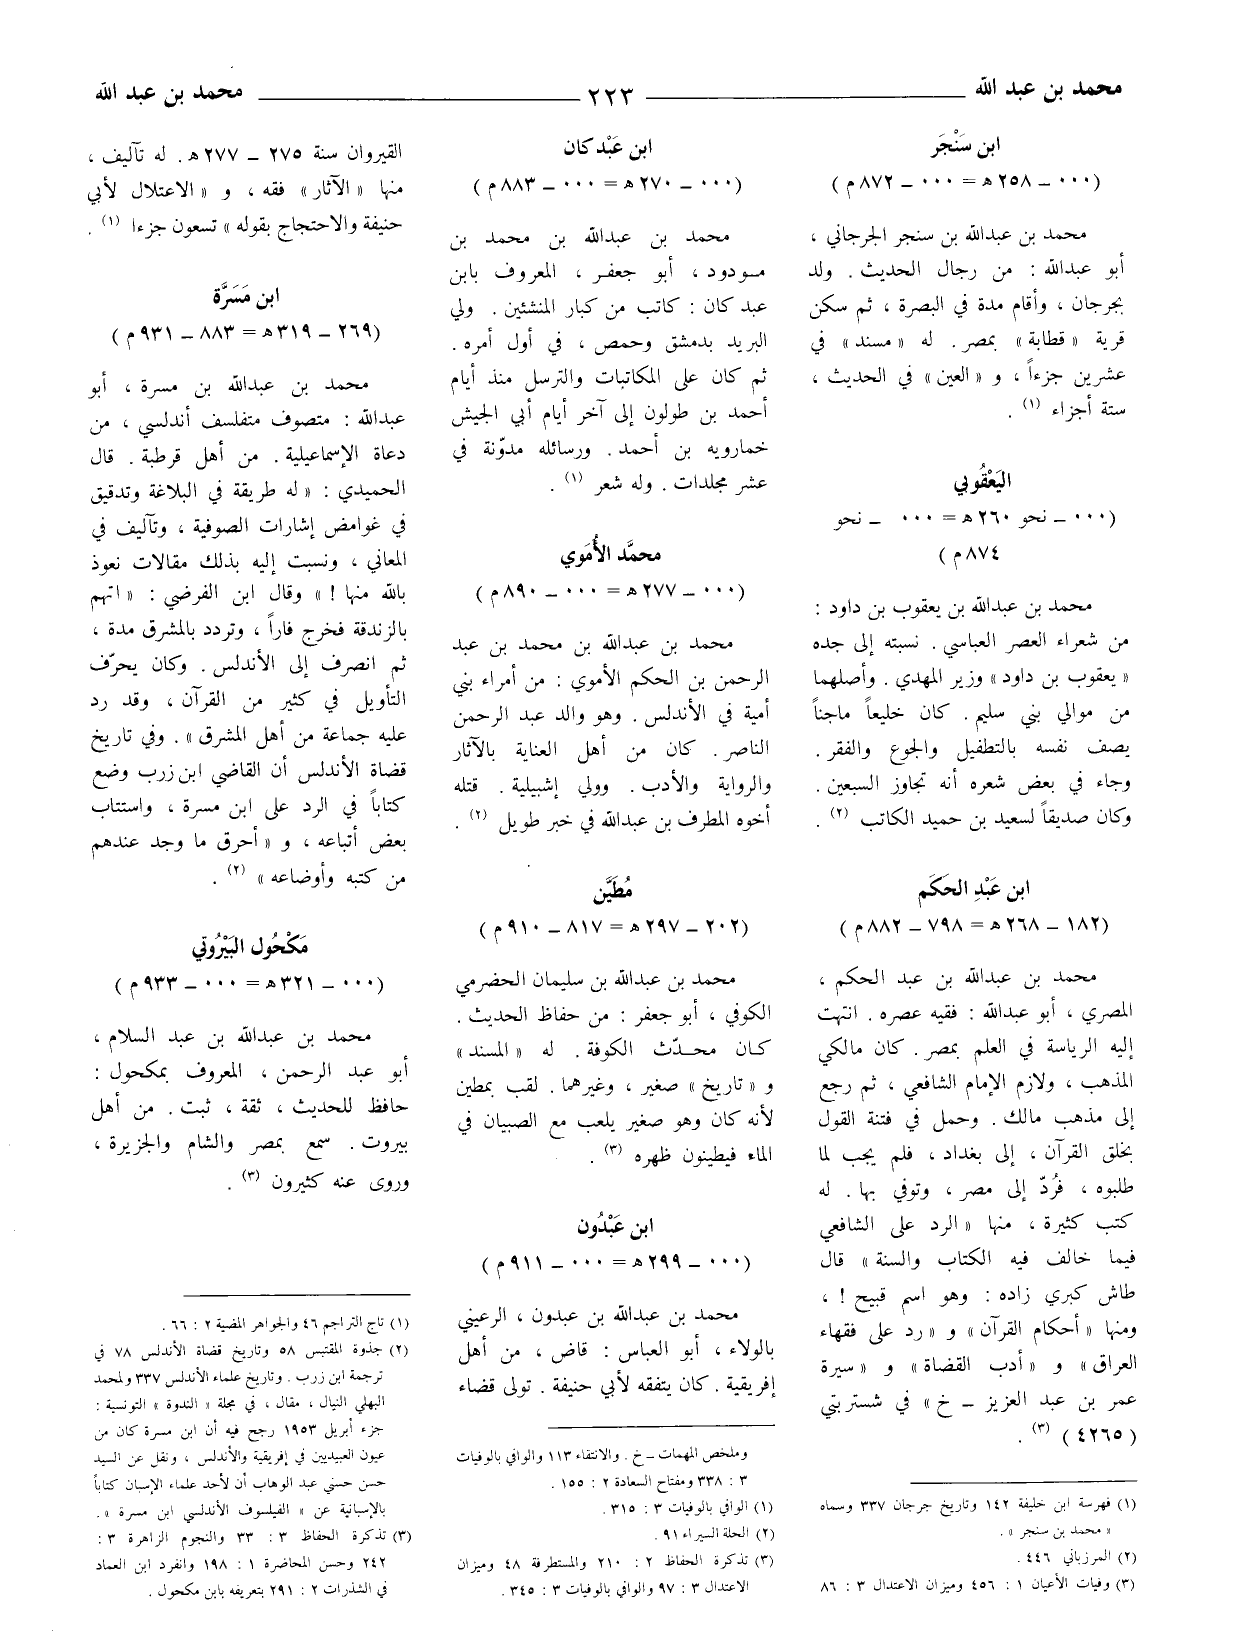 محمد بن عبد الله
٢٢٣
محمد بن عبد الله
ابن سَنْجَر
(٠٠٠ ــ ٢٥٨ هـ = ٠٠٠ ــ ٨٧٢ م)
محمد بن عبدالله بن سنجر الجرجاني ،
أبو عبدالله : من رجال الحديث . ولد
بجرجان ، وأقام مدة في البصرة ، ثم سكن
قرية « قطابة » بمصر . له « مسند » في
عشرين جزءاً ، و « العين » في الحديث ،
ستة أجزاء (١) .
اليَعْقُوبي
(٠٠٠ ــ نحو ٢٦٠ هـ = ٠٠٠ ــ نحو
٨٧٤ م)
محمد بن عبدالله بن يعقوب بن داود :
من شعراء العصر العباسي . نسبته إلى جده
« يعقوب بن داود » وزير المهدي . وأصلهما
من موالي بني سليم . كان خليعاً ماجناً
يصف نفسه بالتطفيل والجوع والفقر .
وجاء في بعض شعره أنه تجاوز السبعين .
وكان صديقاً لسعيد بن حميد الكاتب (٢) .
ابن عَبْدِ الحَكَم
(١٨٢ ــ ٢٦٨ هـ = ٧٩٨ ــ ٨٨٢ م)
محمد بن عبدالله بن عبد الحكم ،
المصري ، أبو عبدالله : فقيه عصره . انتهت
إليه الرياسة في العلم بمصر . كان مالكي
المذهب ، ولازم الإمام الشافعي ، ثم رجع
إلى مذهب مالك . وحمل في فتنة القول
بخلق القرآن ، إلى بغداد ، فلم يجب لما
طلبوه ، فرُدّ إلى مصر ، وتوفي بها . له
كتب كثيرة ، منها « الرد على الشافعي
فيما خالف فيه الكتاب والسنة » قال
طاش كبري زاده : وهو اسم قبيح ! ،
ومنها « أحكام القرآن » و « رد على فقهاء
العراق » و « أدب القضاة » و « سيرة
عمر بن عبد العزيز ــ خ » في شستربتي
(٤٢٦٥) (٣) .
(١) فهرسة ابن خليفة ١٤٢ وتاريخ جرجان ٣٣٧ وسماه
« محمد بن سنجر » .
(٢) المرزباني ٤٤٦ .
(٣) وفيات الأعيان ١ : ٤٥٦ وميزان الاعتدال ٣ : ٨٦
ابن عَبْدكان
(٠٠٠ ــ ٢٧٠ هـ = ٠٠٠ ــ ٨٨٣ م)
محمد بن عبدالله بن محمد بن
مودود ، أبو جعفر ، المعروف بابن
عبدكان : كاتب من كبار المنشئين . ولي
البريد بدمشق وحمص ، في أول أمره .
ثم كان على المكاتبات والترسل منذ أيام
أحمد بن طولون إلى آخر أيام أبي الجيش
خمارويه بن أحمد . ورسائله مدوّنة في
عشر مجلدات . وله شعر (١) .
محمَّد الأُمَوي
(٠٠٠ ــ ٢٧٧ هـ = ٠٠٠ ــ ٨٩٠ م)
محمد بن عبدالله بن محمد بن عبد
الرحمن بن الحكم الأموي : من أمراء بني
أمية في الأندلس . وهو والد عبد الرحمن
الناصر . كان من أهل العناية بالآثار
والرواية والأدب . وولي إشبيلية . قتله
أخوه المطرف بن عبدالله في خبر طويل (٢) .
مُطَيَّن
(٢٠٢ ــ ٢٩٧ هـ = ٨١٧ ــ ٩١٠ م)
محمد بن عبدالله بن سليمان الحضرمي
الكوفي ، أبو جعفر : من حفاظ الحديث .
كان محدّث الكوفة . له « المسند »
و « تاريخ » صغير ، وغيرهما . لقب بمطين
لأنه كان وهو صغير يلعب مع الصبيان في
الماء فيطينون ظهره (٣) .
ابن عَبْدُون
(٠٠٠ ــ ٢٩٩ هـ = ٠٠٠ ــ ٩١١ م)
محمد بن عبدالله بن عبدون ، الرعيني
بالولاء ، أبو العباس : قاض ، من أهل
إفريقية . كان يتفقه لأبي حنيفة . تولى قضاء
وملخص المهمات ــ خ . والانتقاء ١١٣ والوافي بالوفيات
٣ : ٣٣٨ ومفتاح السعادة ٢ : ١٥٥ .
(١) الوافي بالوفيات ٣ : ٣١٥ .
(٢) الحلة السيراء ٩١ .
(٣) تذكرة الحفاظ ٢ : ٢١٠ والمستطرفة ٤٨ وميزان
الاعتدال ٣ : ٩٧ والوافي بالوفيات ٣ : ٣٤٥ .
القيروان سنة ٢٧٥ ــ ٢٧٧ هـ . له تآليف ،
منها « الآثار » فقه ، و « الاعتلال لأبي
حنيفة والاحتجاج بقوله » تسعون جزءا (١) .
ابن مَسَرَّة
(٢٦٩ ــ ٣١٩ هـ = ٨٨٣ ــ ٩٣١ م)
محمد بن عبدالله بن مسرة ، أبو
عبدالله : متصوف متفلسف أندلسي ، من
دعاة الإسماعيلية . من أهل قرطبة . قال
الحميدي : « له طريقة في البلاغة وتدقيق
في غوامض إشارات الصوفية ، وتآليف في
المعاني ، ونسبت إليه بذلك مقالات نعوذ
بالله منها ! » وقال ابن الفرضي : « اتهم
بالزندقة فخرج فاراً ، وتردد بالمشرق مدة ،
ثم انصرف إلى الأندلس . وكان يحرّف
التأويل في كثير من القرآن ، وقد رد
عليه جماعة من أهل المشرق » . وفي تاريخ
قضاة الأندلس أن القاضي ابن زرب وضع
كتاباً في الرد على ابن مسرة ، واستتاب
بعض أتباعه ، و « أحرق ما وجد عندهم
من كتبه وأوضاعه » (٢) .
مَكْحُول البَيْرُوتي
(٠٠٠ ــ ٣٢١ هـ = ٠٠٠ ــ ٩٣٣ م)
محمد بن عبدالله بن عبد السلام ،
أبو عبد الرحمن ، المعروف بمكحول :
حافظ للحديث ، ثقة ، ثبت . من أهل
بيروت . سمع بمصر والشام والجزيرة ،
وروى عنه كثيرون (٣) .
(١) تاج التراجم ٤٦ والجواهر المضية ٢ : ٦٦ .
(٢) جذوة المقتبس ٥٨ وتاريخ قضاة الأندلس ٧٨ في
ترجمة ابن زرب . وتاريخ علماء الأندلس ٣٣٧ ولمحمد
البهلي النيال ، مقال ، في مجلة « الندوة » التونسية :
جزء أبريل ١٩٥٣ رجح فيه أن ابن مسرة كان من
عيون العبيديين في إفريقية والأندلس ، ونقل عن السيد
حسن حسني عبد الوهاب أن لأحد علماء الإسبان كتاباً
بالإسبانية عن « الفيلسوف الأندلسي ابن مسرة » .
(٣) تذكرة الحفاظ ٣ : ٣٣ والنجوم الزاهرة ٣ :
٢٤٢ وحسن المحاضرة ١ : ١٩٨ وانفرد ابن العماد
في الشذرات ٢ : ٢٩١ بتعريفه بابن مكحول .